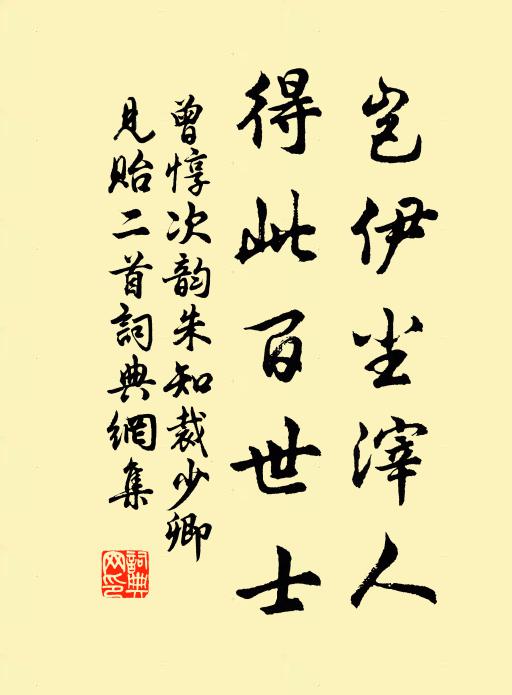 岂伊尘滓人
得此百世士
曾惇次韵朱知裁少卿
見贻二首詞典網集
詞典网印